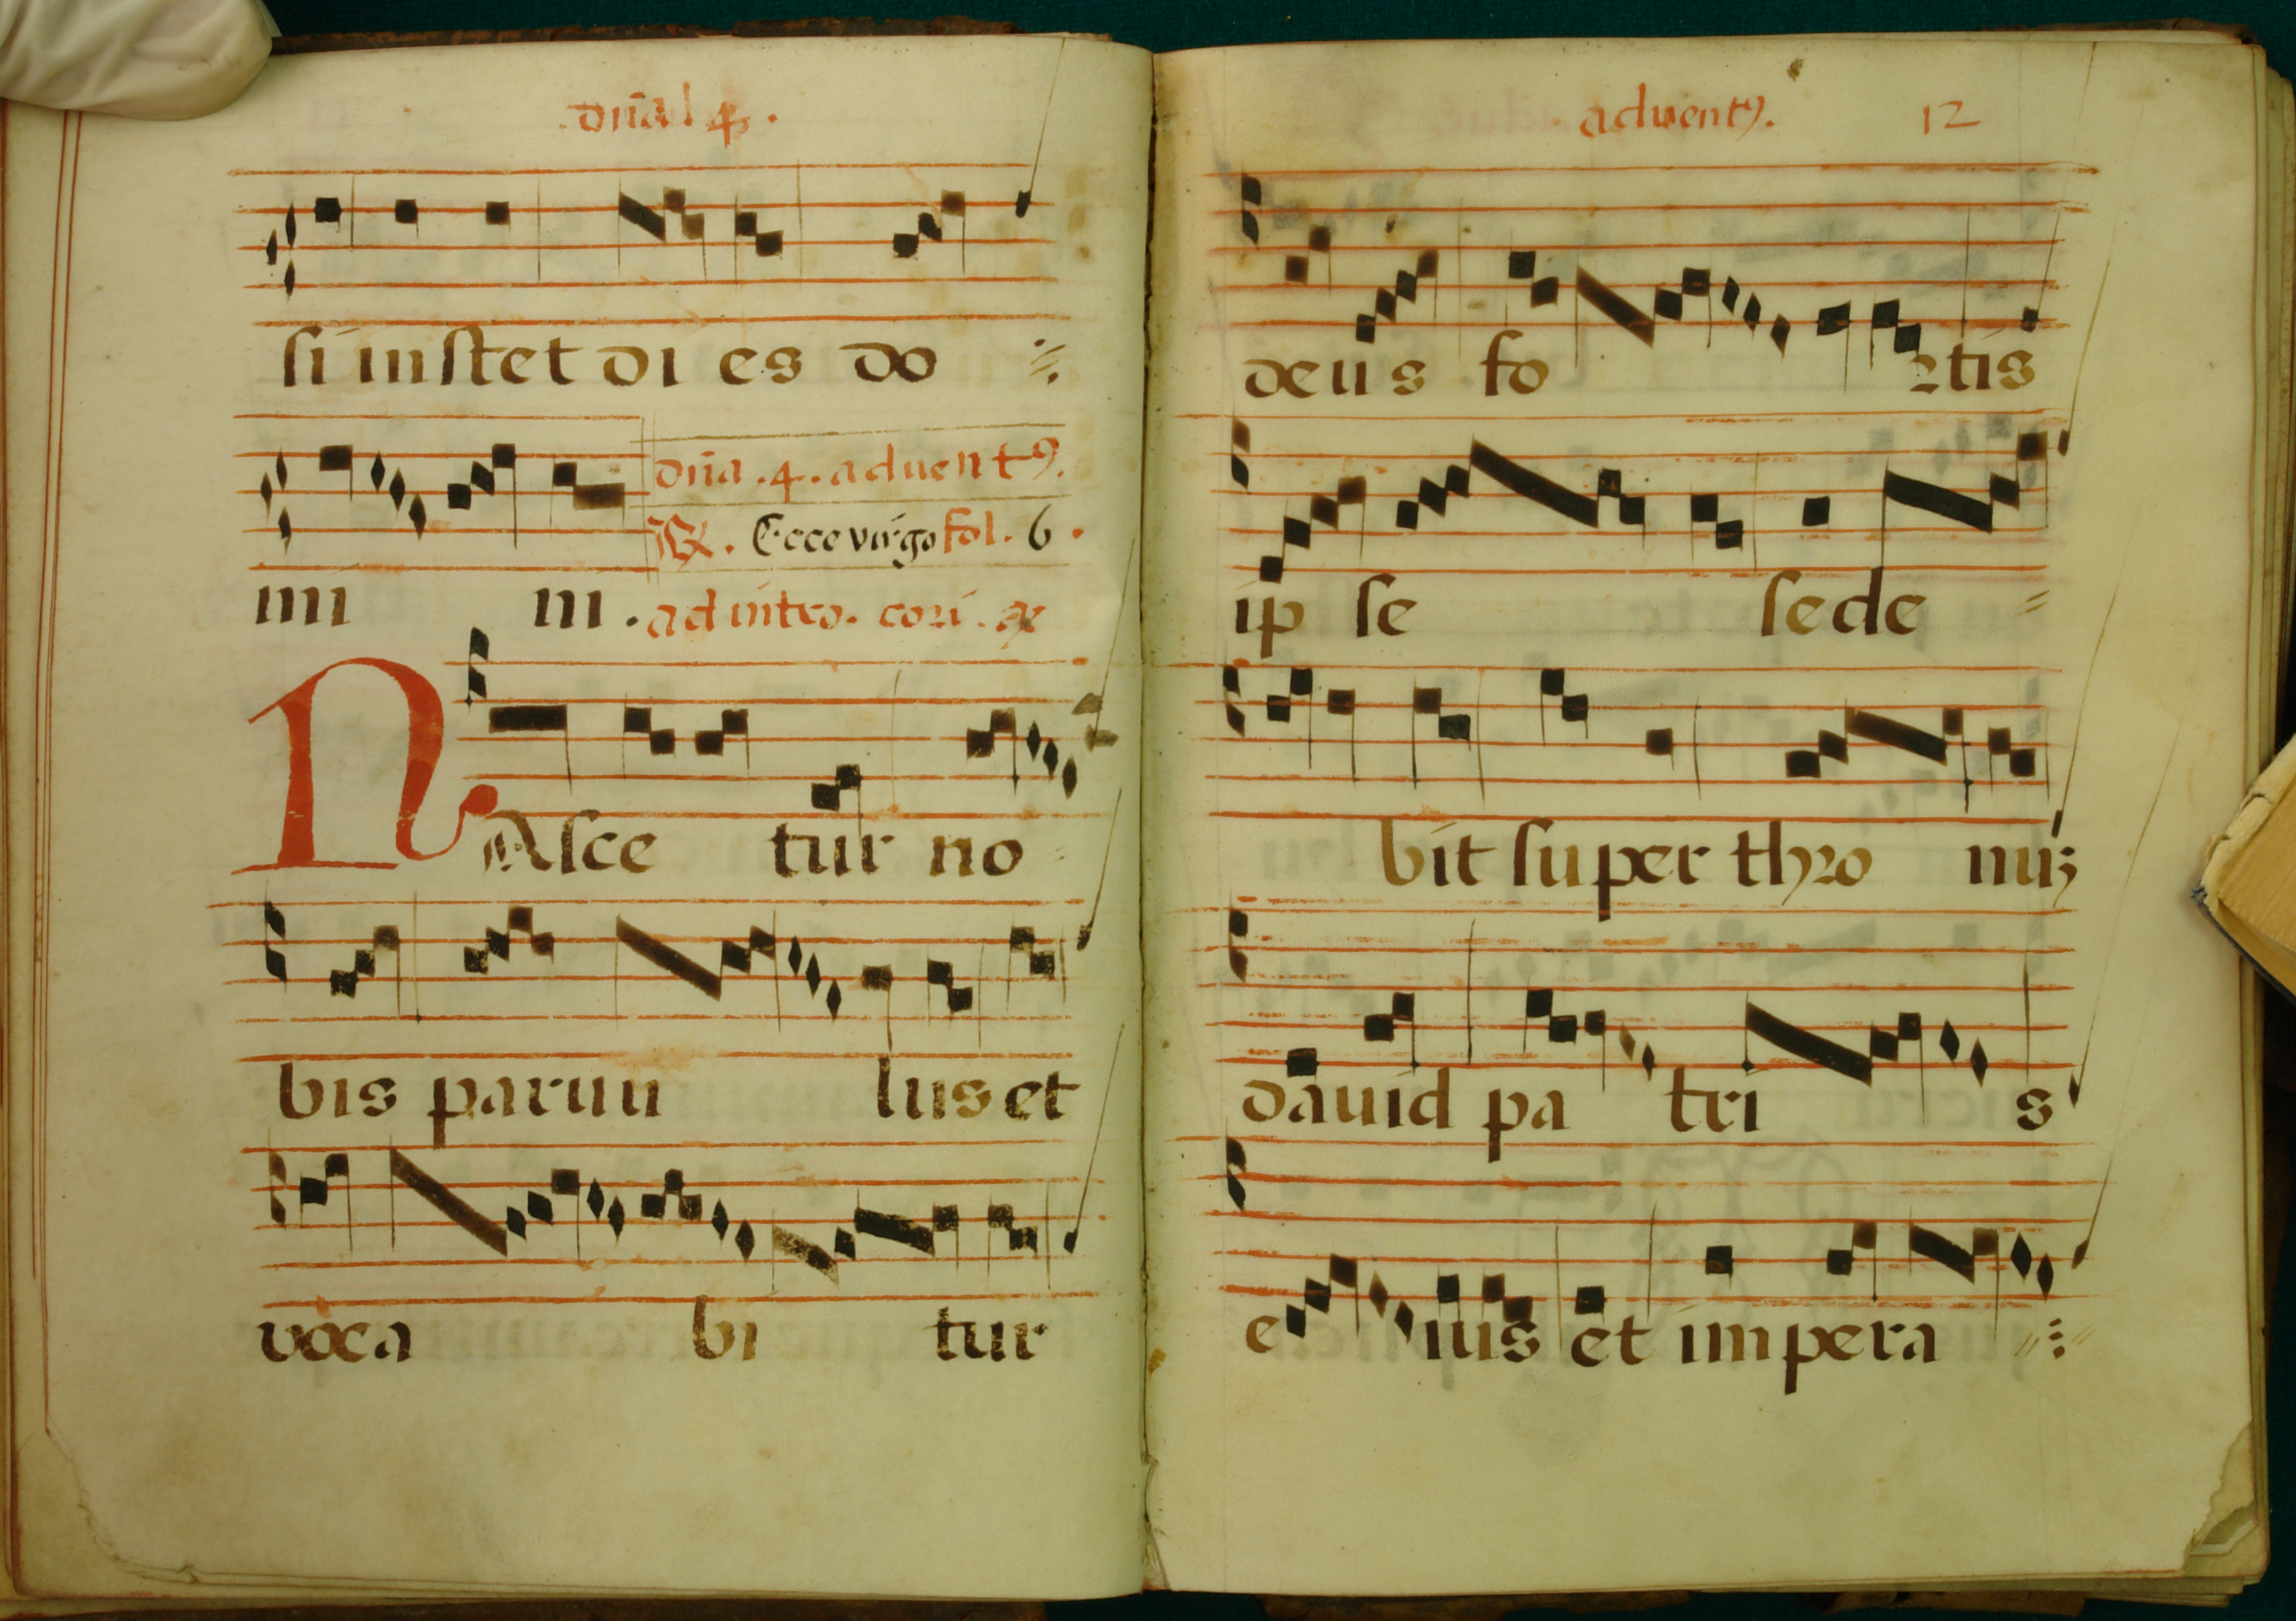 dñal 4.
si instet di es do
dña .4. advent9.
℟. Ecce virgo fol. 6.
mi ni . ad intro. cori.
NAsce tur no
bis paruu lus et
voca bi tur
advent9. 12
deus fo rtis
ip se sede
bit super thro nuʒ
dauid pa tri s
e ius et impera